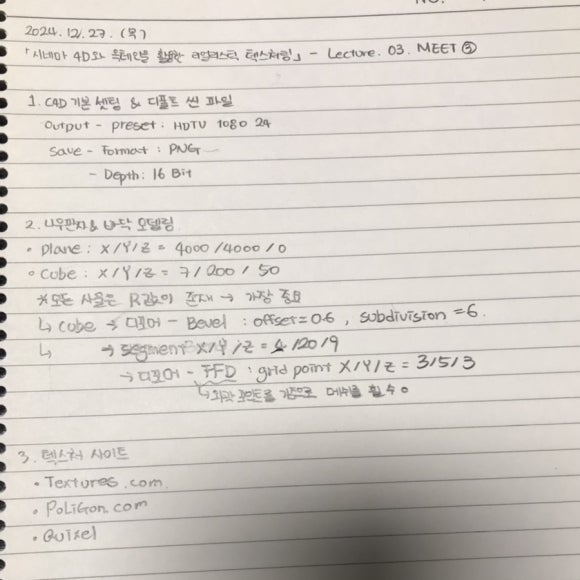 NO.
2024. 12. 27. (목)
「시네마 4D와 옥테인을 활용한 리얼리스틱 텍스처링」 - Lecture. 03. MEET ③
1. C4D 기본 셋팅 & 디폴트 씬 파일
Output - preset : HDTV 1080 24
Save - Format : PNG
- Depth : 16 Bit
2. 나무판자 & 바닥 모델링
• plane : X/Y/Z = 4000/4000/0
• Cube : X/Y/Z = 7/200/50
*모든 사물은 R값이 존재 → 가장 중요
↳ cobe → 디포머 - Bevel : offset=0.6, subdivision=6.
↳ → segment X/Y/Z = 4/20/9
→ 디포머 - FFD : grid point X/Y/Z = 3/5/3
↳ 외곽 포인트를 기준으로 메쉬를 휠 수 o
3. 텍스처 사이트
• Textures.com.
• PoLiGon.com
• Quixel